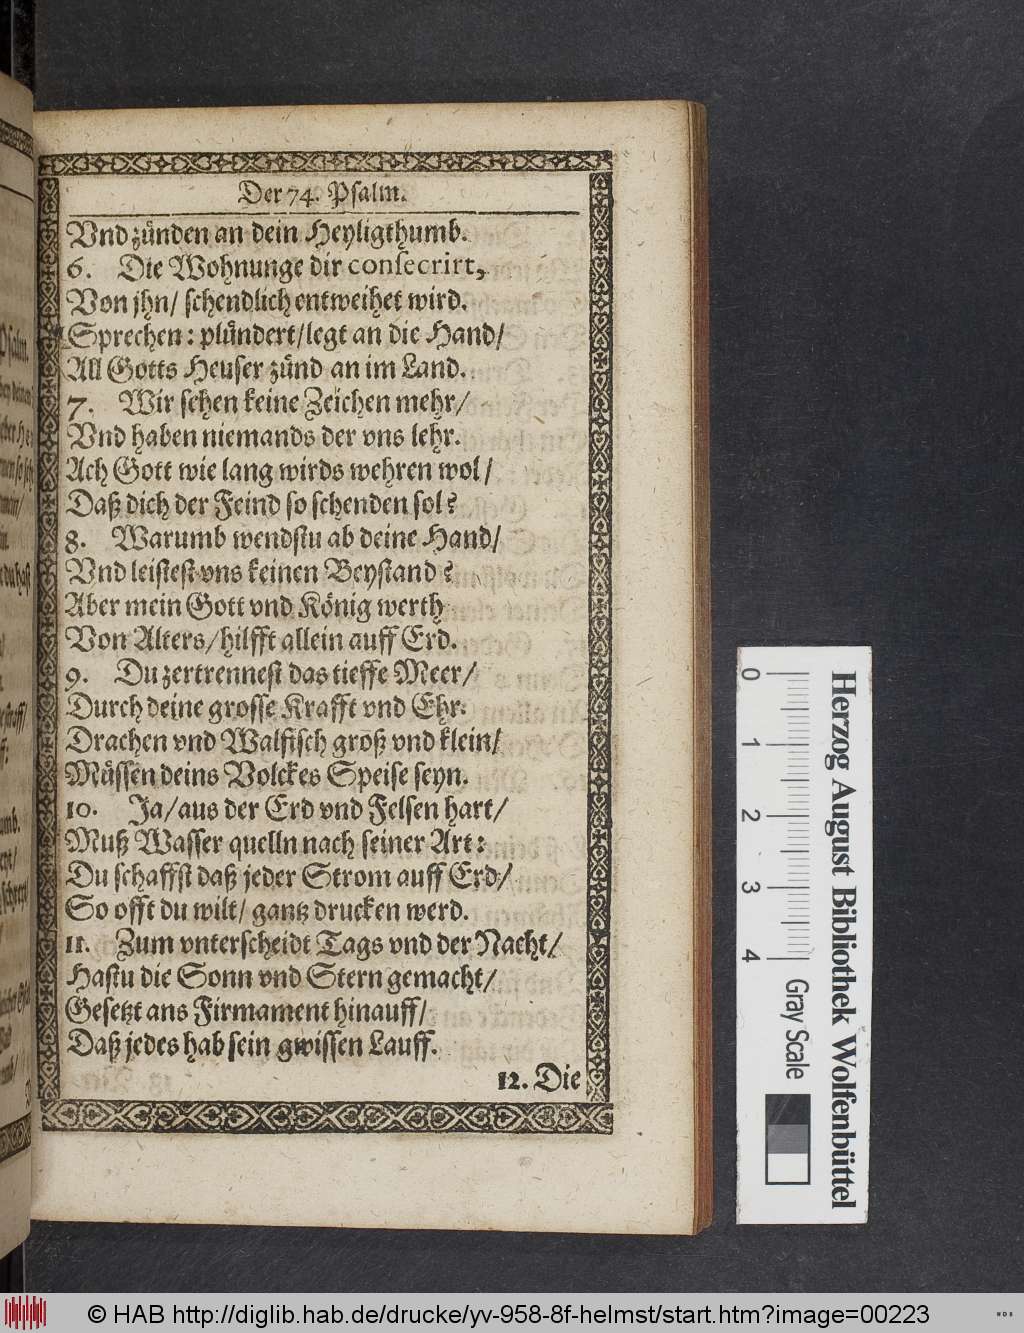 Der 74. Psalm.
Vnd zünden an dein Heyligthumb.
6. Die Wohnunge dir consecrirt,
Von jhn/ schendlich entweihet wird.
Sprechen: plündert/legt an die Hand/
All Gotts Heuser zünd an im Land.
7. Wir sehen keine Zeichen mehr/
Vnd haben niemands der vns lehr.
Ach Gott wie lang wirds wehren wol/
Daß dich der Feind so schenden sol?
8. Warumb wendstu ab deine Hand/
Vnd leistest vns keinen Beystand?
Aber mein Gott vnd König werth
Von Alters/hilfft allein auff Erd.
9. Du zertrennest das tieffe Meer/
Durch deine grosse Krafft vnd Ehr.
Drachen vnd Walfisch groß vnd klein/
Müssen deins Volckes Speise seyn.
10. Ja/aus der Erd vnd Felsen hart/
Muß Wasser quelln nach seiner Art:
Du schaffst daß jeder Strom auff Erd/
So offt du wilt/ gantz drucken werd.
11. Zum vnterscheidt Tags vnd der Nacht/
Hastu die Sonn vnd Stern gemacht/
Gesetzt ans Firmament hinauff/
Daß jedes hab sein gwissen Lauff.
12. Die
0 1 2 3 4
Gray Scale
Herzog August Bibliothek Wolfenbüttel
© HAB http://diglib.hab.de/drucke/yv-958-8f-helmst/start.htm?image=00223